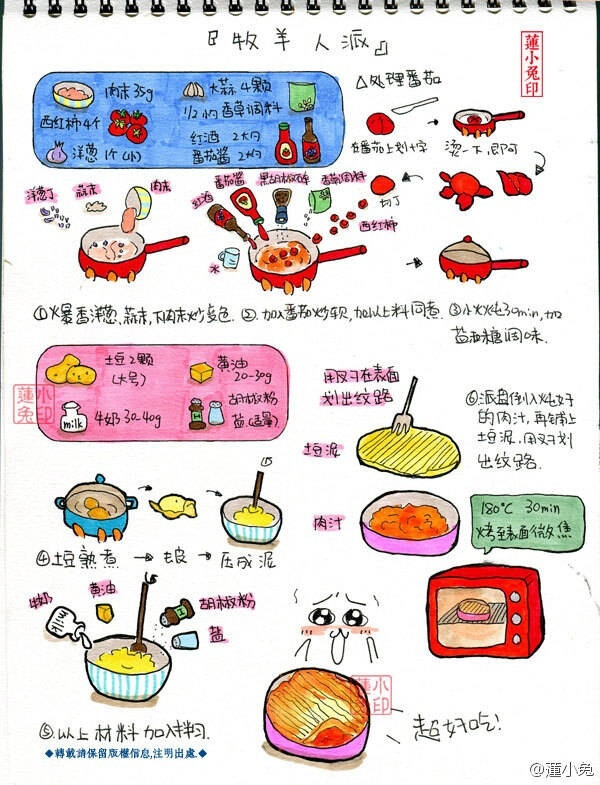 『牧羊人派』
蓮小兔印
肉末35g
大蒜4颗
西红柿4个
1/2小勺香草调料
洋葱1个(小)
红酒2大勺
番茄酱2大勺
△处理番茄
在番茄上划十字
烫一下即可
切丁
洋葱丁
蒜末
肉末
红酒
番茄酱
黑胡椒碎
香草调料
西红柿
水
①爆香洋葱、蒜末,下肉末炒变色.
②加入番茄炒软,加以上料同煮.
③小火炖30min,加
盐和糖调味.
土豆2颗
(大号)
黄油
20-30g
milk
牛奶30-40g
胡椒粉
盐(适量)
蓮小兔印
用叉子在表面
划出纹路
土豆泥
⑥派盘倒入炖好
的肉汁,再铺上
土豆泥,用叉子划
出纹路.
肉汁
180℃ 30min
烤至表面微焦
④土豆熟煮→去皮→压成泥
牛奶
黄油
胡椒粉
盐
milk
⑤以上材料加入拌匀.
蓮小兔印
超好吃!
◆轉載請保留版權信息,注明出處.◆
@蓮小兔